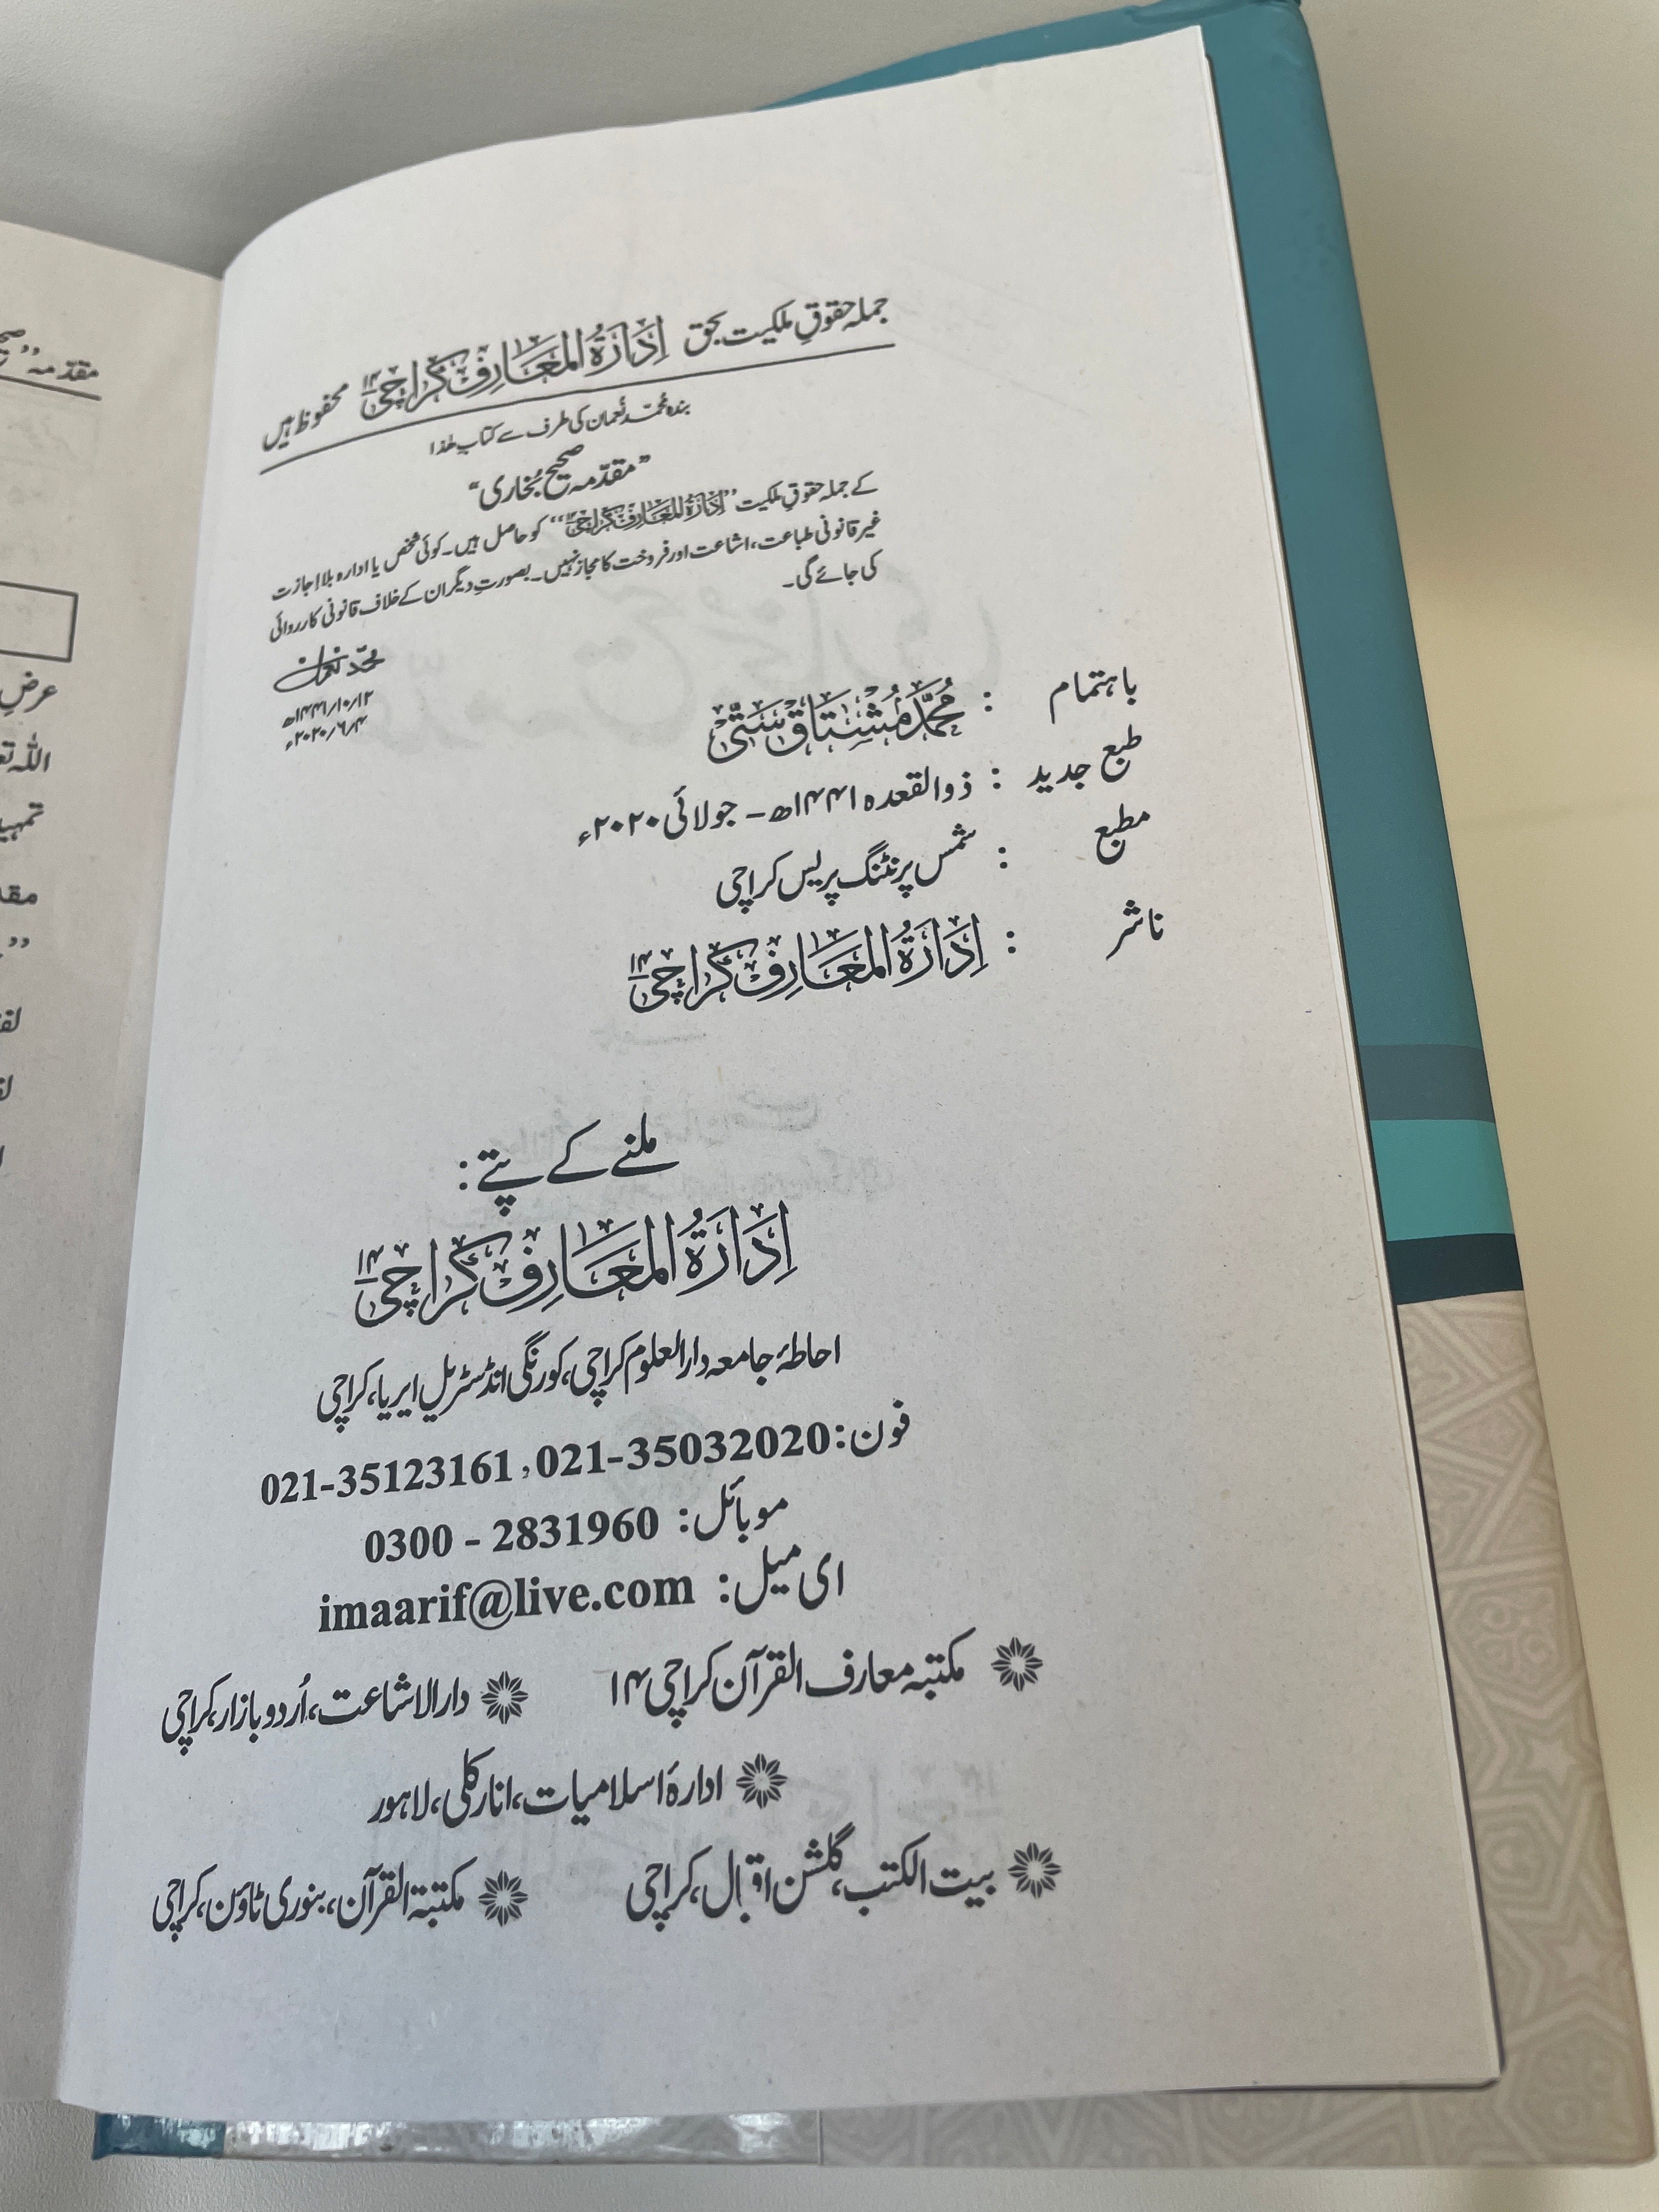 جملہ حقوقِ ملکیت بحق اِدَارَۃُ المَعَارِف کَراچِی ۱۴ محفوظ ہیں
بندہ محمّد نُعمان کی طرف سے کتاب ھٰذا
”مقدّمہ صحیح بُخاری“
کے جملہ حقوقِ ملکیت ”اِدَارَۃُ المَعَارِف کَراچِی“ کو حاصل ہیں۔ کوئی شخص یا ادارہ بلا اجازت
غیر قانونی طباعت، اشاعت اور فروخت کا مجاز نہیں۔ بصورتِ دیگر ان کے خلاف قانونی کارروائی
کی جائے گی۔
محمّد نعمان
۱۴۴۱/۱۰/۱۲ھ
۲۰۲۰/۶/۴ء
باہتمام : مُحَمَّد مُشْتَاق سَتِّی
طبع جدید : ذوالقعدہ ۱۴۴۱ھ - جولائی ۲۰۲۰ء
مطبع : شمس پرنٹنگ پریس کراچی
ناشر : اِدَارَۃُ المَعَارِف کَراچِی ۱۴
ملنے کے پتے:
اِدَارَۃُ المَعَارِف کَراچِی ۱۴
احاطۂ جامعہ دارالعلوم کراچی، کورنگی انڈسٹریل ایریا، کراچی
فون: 021-35032020, 021-35123161
موبائل: 0300 - 2831960
ای میل: imaarif@live.com
مکتبہ معارف القرآن کراچی ۱۴
دارالاشاعت، اُردو بازار، کراچی
ادارۂ اسلامیات، انارکلی، لاہور
بیت الکتب، گلشن اقبال، کراچی
مکتبۃ القرآن، بنوری ٹاؤن، کراچی
مقدّمہ ”
عرضِ
تمہید